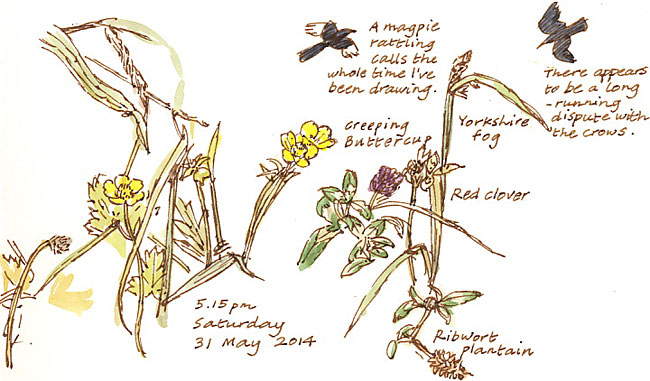 A magpie
rattling
calls the
whole time I've
been drawing.
There appears
to be a long
-running
dispute with
the crows.
Creeping
Buttercup
Yorkshire
fog
Red clover
5.15pm
Saturday
31 May 2014
Ribwort
plantain